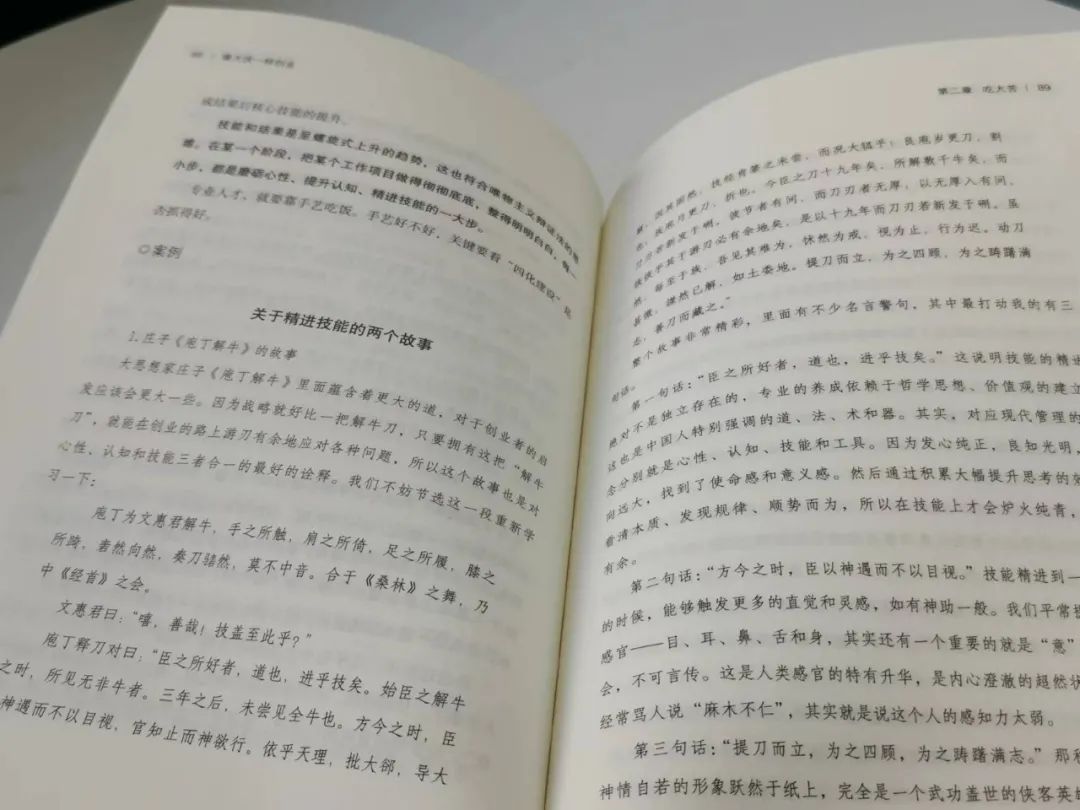 88 | 像大侠一样创业
成结果后核心技能的提升。
技能和结果是呈螺旋式上升的趋势，这也符合唯物主义辩证法的思
维。在某一个阶段，把某个工作项目做得彻彻底底，整得明明白白，每一
小步，都是磨砺心性、提升认知、精进技能的一大步。
专业人才，就要靠手艺吃饭。手艺好不好，关键要看“四化建设”是
否抓得好。
◎案例
关于精进技能的两个故事
1.庄子《庖丁解牛》的故事
大思想家庄子《庖丁解牛》里面蕴含着更大的道，对于创业者的启
发应该会更大一些。因为战略就好比一把解牛刀，只要拥有这把“解牛
刀”，就能在创业的路上游刃有余地应对各种问题，所以这个故事也是对
心性、认知和技能三者合一的最好的诠释。我们不妨节选这一段重新学
习一下：
庖丁为文惠君解牛，手之所触，肩之所倚，足之所履，膝之
所踦，砉然向然，奏刀騞然，莫不中音。合于《桑林》之舞，乃
中《经首》之会。
文惠君曰：“嘻，善哉！技盖至此乎？”
庖丁释刀对曰：“臣之所好者，道也，进乎技矣。始臣之解牛
之时，所见无非牛者。三年之后，未尝见全牛也。方今之时，臣
神遇而不以目视，官知止而神欲行。依乎天理，批大郤，导大
第二章 吃大苦 | 89
因其固然，技经肯綮之未尝，而况大軱乎！良庖岁更刀，割
月更刀，折也。今臣之刀十九年矣，所解数千牛矣，而
刀刃若新发于硎。彼节者有间，而刀刃者无厚，以无厚入有间，
恢恢乎其于游刃必有余地矣，是以十九年而刀刃若新发于硎。虽
然，每至于族，吾见其难为，怵然为戒，视为止，行为迟。动刀
甚微，謋然已解，如土委地。提刀而立，为之四顾，为之踌躇满
志，善刀而藏之。”
整个故事非常精彩，里面有不少名言警句，其中最打动我的有三
句话。
第一句话：“臣之所好者，道也，进乎技矣。”这说明技能的精进
绝对不是独立存在的，专业的养成依赖于哲学思想、价值观的建立
这也是中国人特别强调的道、法、术和器。其实，对应现代管理的
念分别就是心性、认知、技能和工具。因为发心纯正，良知光明，
向远大，找到了使命感和意义感。然后通过积累大幅提升思考的效
看清本质、发现规律、顺势而为，所以在技能上才会炉火纯青，
有余。
第二句话：“方今之时，臣以神遇而不以目视。”技能精进到一
的时候，能够触发更多的直觉和灵感，如有神助一般。我们平常
感官——目、耳、鼻、舌和身，其实还有一个重要的就是“意”
会，不可言传。这是人类感官的特有升华，是内心澄澈的超然状
经常骂人说“麻木不仁”，其实就是说这个人的感知力太弱。
第三句话：“提刀而立，为之四顾，为之踌躇满志。”那种
神情自若的形象跃然于纸上，完全是一个武功盖世的侠客英雄